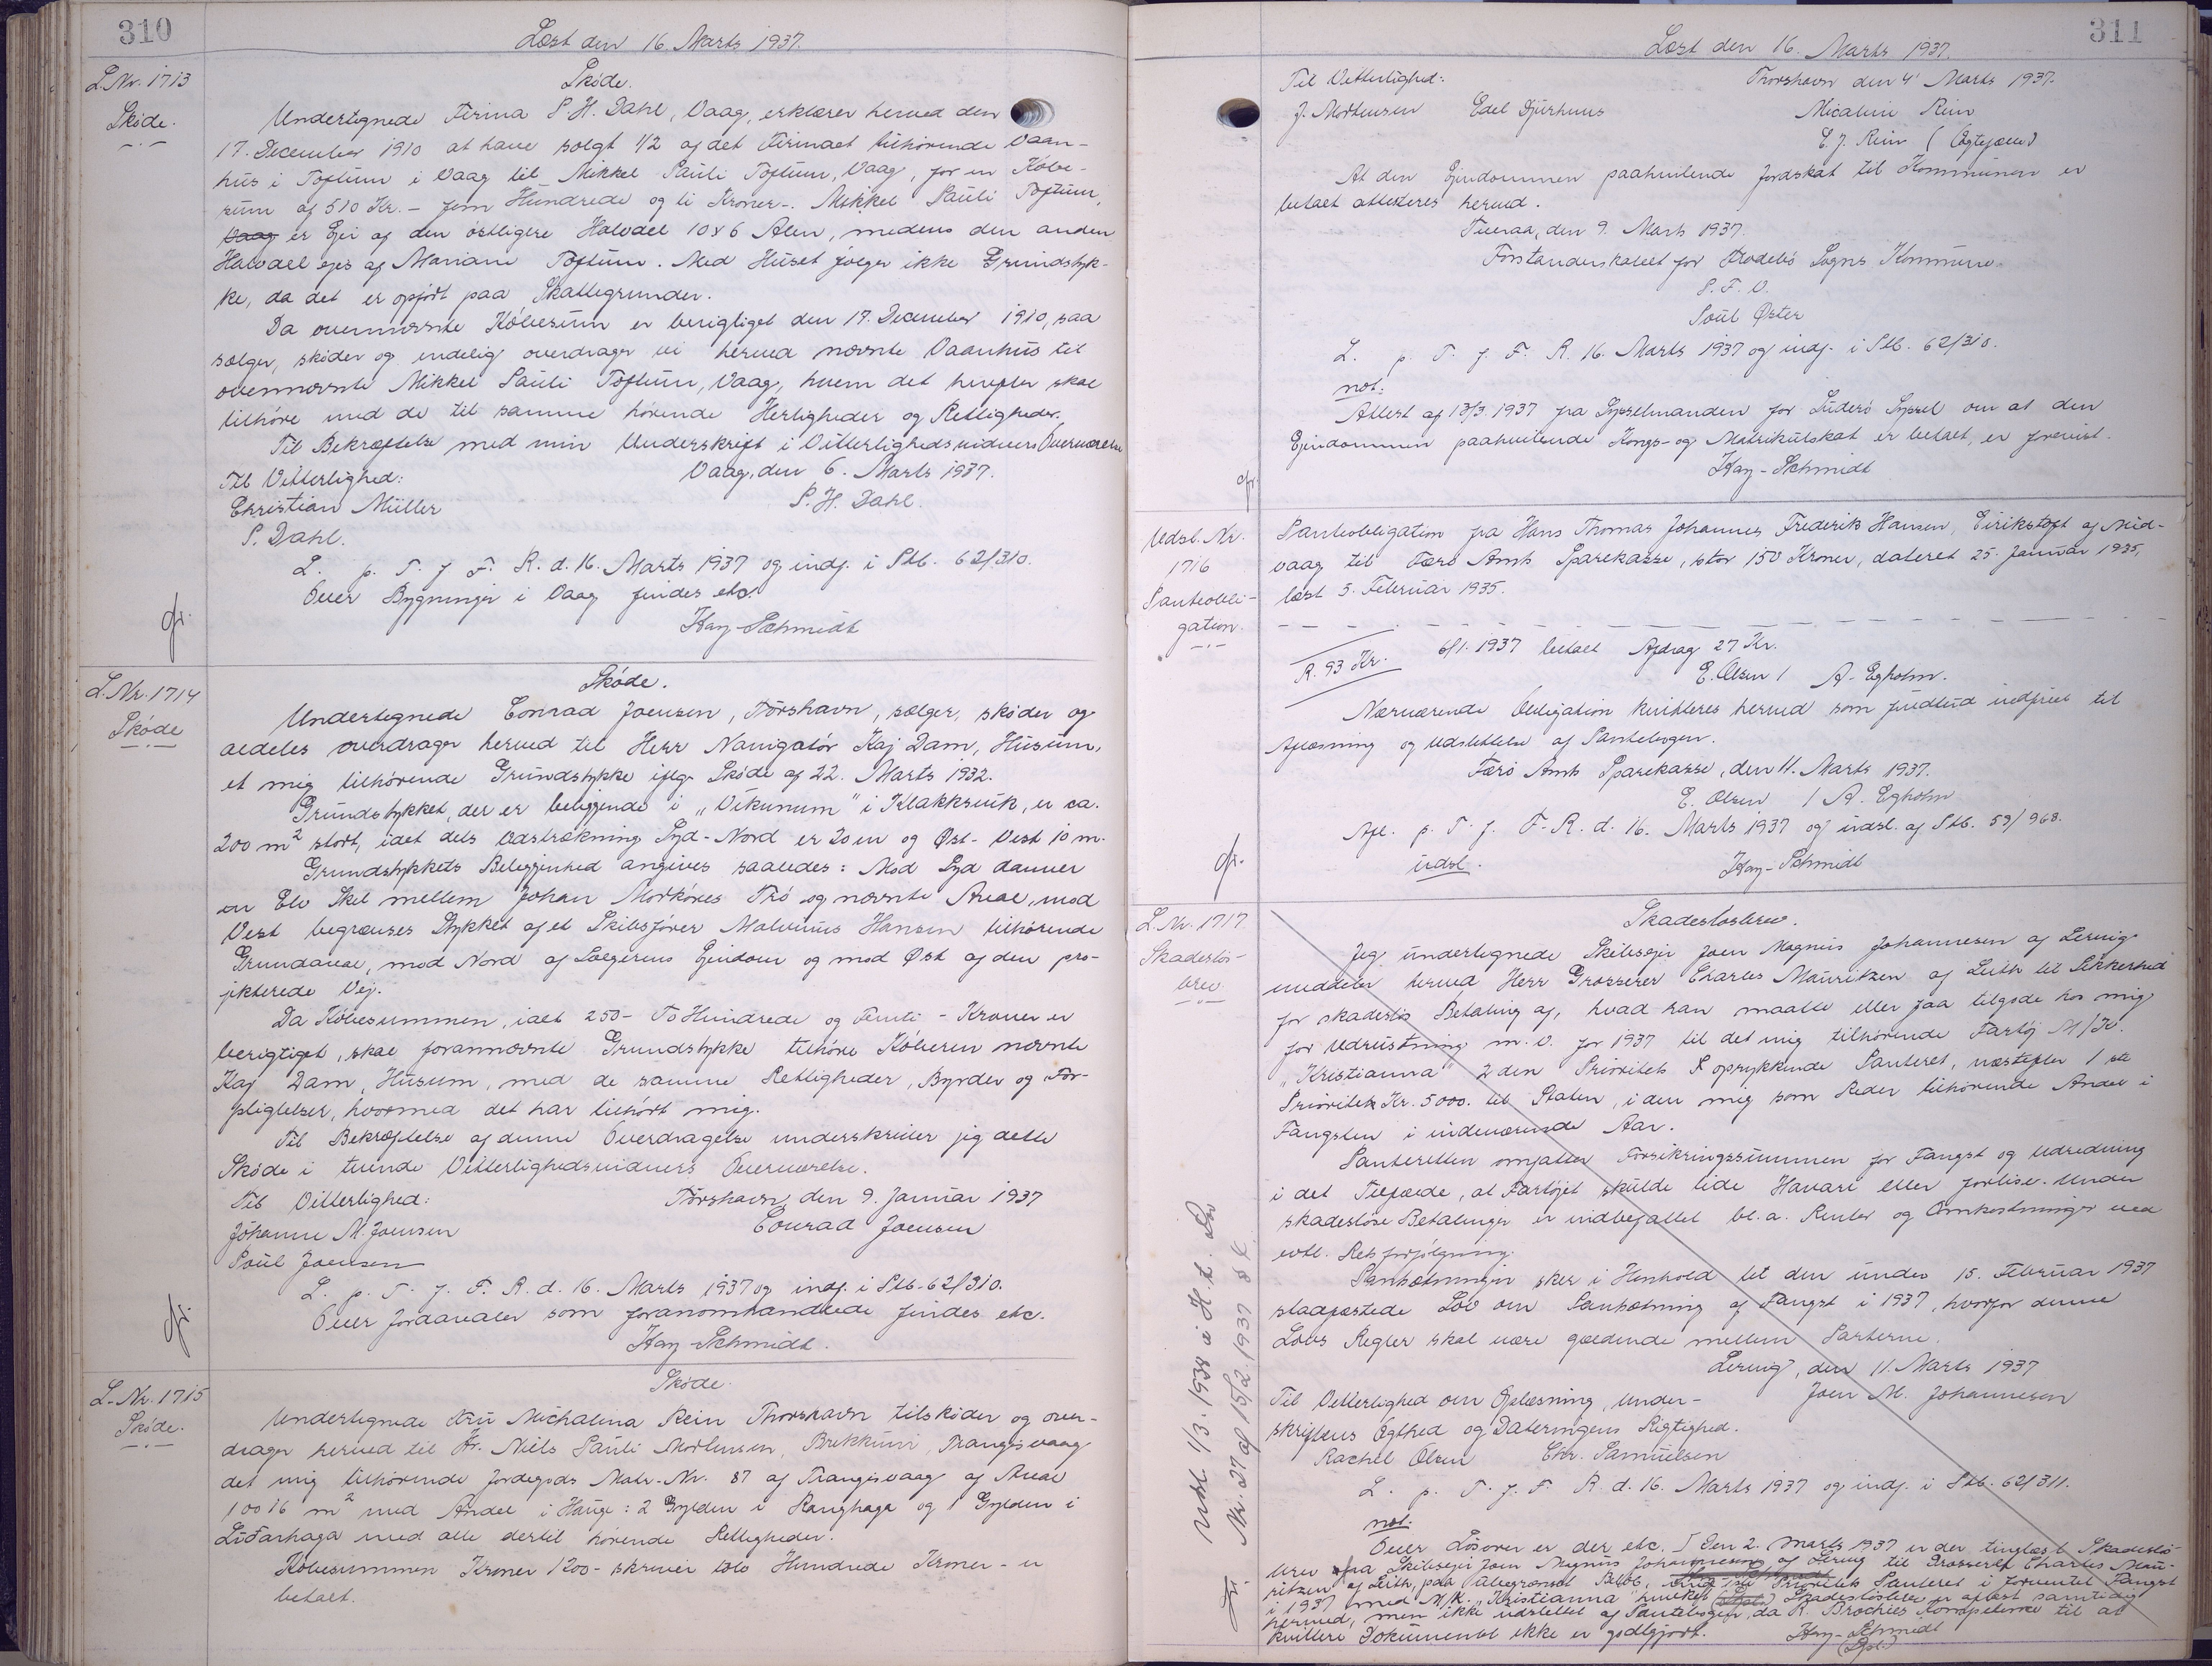 310
Læst den 16. Marts 1937.
L.Nr. 1713
Skøde.
Skøde.
Undertegnede Firma P. H. Dahl, Vaag, erklærer herved den
17. December 1910 at have solgt 1/2 af det Firmaet tilhørende Vaan-
hus i Toftum i Vaag til Mikkel Pauli Toftum, Vaag, for en Købe-
sum af 510 Kr. - fem Hundrede og ti Kroner -. Mikkel Pauli Toftum,
Vaag er Ejer af den østligere Halvdel 10x6 Alen, medens den anden
Halvdel ejes af Mariane Toftum. Med Huset følger ikke Grundstyk-
ke, da det er opført paa Skattegrunden.
Da ovennævnte Købesum er berigtiget den 17. December 1910, saa
sælger, skøder og endelig overdrager vi herved nævnte Vaanhus til
ovennævnte Mikkel Pauli Toftum, Vaag, hvem det herefter skal
tilhøre med de til samme hørende Herligheder og Rettigheder.
Til Bekræftelse med min Underskrift i Vitterlighedsvidners Overværelse
Til Vitterlighed: Vaag, den 6. Marts 1937.
Christian Müller P. H. Dahl.
P. Dahl.
L. p. T. f. F. R. d. 16. Marts 1937 og indf. i Ptb. 62/310.
Over Bygninger i Vaag findes etc.
Kay-Schmidt
L. Nr. 1714
Skøde
Skøde.
Undertegnede Conrad Joensen, Tórshavn, sælger, skøder og
aldeles overdrager herved til Herr Navigatør Kaj Dam, Húsum,
et mig tilhørende Grundstykke iflg. Skøde af 22. Marts 1932.
Grundstykket, der er beliggende i "Víkunum" i Klakksvík, er ca.
200 m2 stort, idet dets Udstrækning Syd-Nord er 20 m og Øst-Vest 10 m.
Grundstykkets Beliggenhed angives saaledes: Mod Syd danner
en Elv Skel mellem Johan Mørkøres Trø og nævnte Areal, mod
Vest begrænses Stykket af et Skibsfører Malvinus Hansen tilhørende
Grundareal, mod Nord af Sælgerens Ejendom og mod Øst af den pro-
jekterede Vej.
Da Købesummen, ialt 250 - To Hundrede og Femti - Kroner er
berigtiget, skal forannævnte Grundstykke tilhøre Køberen nævnte
Kaj Dam, Húsum, med de samme Rettigheder, Byrder og For-
pligtelser, hvormed det har tilhørt mig.
Til Bekræftelse af denne Overdragelse underskriver jeg dette
Skøde i tvende Vitterlighedsvidners Overværelse.
Til Vitterlighed: Tórshavn, den 9. Januar 1937
Johanne M. Joensen Conrad Joensen
Poul Joensen
L. p. T. f. F. R. d. 16. Marts 1937 og indf. i Ptb. 62/310.
Over Jordarealer som foranomhandlede findes etc.
Kay-Schmidt.
L. Nr. 1715
Skøde.
Skøde.
Undertegnede Fru Michalina Rein Thorshavn tilskøder og over-
drager herved til Hr. Niels Pauli Mortensen, Brekkuni, Trangisvaag
det mig tilhørende Jordegods Matr. Nr. 87 af Trangisvaag af Areal
10016 m2 med Andel i Hauge: 2 Gylden i Ranghaga og 1 Gylden i
Liðarhaga med alle dertil hørende Rettigheder.
Købesummen Kroner 1200 - skriver tolv Hundrede Kroner - er
betalt.
311
Læst den 16. Marts 1937.
Til Vitterlighed: Thorshavn den 4' Marts 1937.
J. Mortensen Edel Djurhuus Micaline Rein
E. J. Rein (Ægtefælle)
At den Ejendommen paahvilende Jordskat til Kommunen er
betalt attesteres herved.
Tveraa, den 9. Marts 1937.
Forstanderskabet for Frodebø Sogns Kommune
P. F. V.
Poul Øster
L. p. T. f. F. R. 16. Marts 1937 og indf. i Ptb. 62/310.
not:
Attest af 13/3. 1937 fra Sysselmanden for Suderø Syssel om at den
Ejendommen paahvilende Kongs- og Matrikulskat er betalt, er forevist.
Kay-Schmidt
Udsl. Nr.
1716
Panteobli-
gation.
Panteobligation fra Hans Thomas Johannes Frederik Hansen, Eirikstoft af Mid-
vaag til Færø Amts Sparekasse, stor 150 Kroner, dateret 25. Januar 1935,
læst 5. Februar 1935.
R. 93 Kr. 6/1. 1937 betalt Afdrag 27 Kr.
E. Olsen / A. Egholm.
Nærværende Obligation kvitteres herved som fuldtud indfriet til
Aflæsning og Udslettelse af Pantebogen.
Færø Amts Sparekasse, den 11. Marts 1937.
E. Olsen / A. Egholm
Afl. p. T. f. F. R. d. 16. Marts 1937 og udsl. af Ptb. 59/968.
udsl. Kay-Schmidt
L. Nr. 1717
Skadesløs-
brev.
Skadesløsbrev.
Jeg undertegnede Skibsejer Joen Magnus Johannesen af Lervig
meddeler herved Herr Grosserer Charles Mauritzen af Leith til Sikkerhed
for skadesløs Betaling af, hvad han maatte eller faa tilgode hos mig
for Udrustning m. v. for 1937 til det mig tilhørende Fartøj M/K.
"Kristianna" 2den Prioritets & oprykkende Panteret, næstefter 1ste
Prioritet Kr. 5000. til Staten, i den mig som Reder tilhørende Andel i
Fangsten i indeværende Aar.
Panteretten omfatter Forsikringssummen for Fangst og Udredning
i det Tilfælde, at Fartøjet skulde lide Havari eller forlise. Under
skadesløse Betalinger er indbefattet bl. a. Renter og Omkostninger ved
evtl. Retsforfølgning.
Pantsætningen sker i Henhold til den under 15. Februar 1937
stadfæstede Lov om Pantsætning af Fangst i 1937, hvorfor denne
Lovs Regler skal være gældende mellem Parterne.
Lervig, den 11. Marts 1937
Til Vitterlighed om Oplæsning, Under- Joen M. Johannesen
skriftens Ægthed og Dateringens Rigtighed.
Rachel Olsen Chr. Samuelsen
L. p. T. f. F. R. d. 16. Marts 1937 og indf. i Ptb. 62/311.
not.
Over Løsøren er der etc. Den 2. Marts 1937 er der tinglæst Skadesløs-
brev fra Skibsejer Joen Magnus Johannesen af Lervig til Grosserer Charles Mau-
ritzen af Leith, paa ubegrænset Beløb, 1ste Prioritets Panteret i forventet Fangst
i 1937 med M/K. "Kristianna" hvilket Skadesløsbrev er aflæst samtidig
hermed, men ikke udslettet af Pantebogen, da R. Brochies Kompetence til at
kvittere Dokumentet ikke er godtgjort. Kay-Schmidt
Udsl. 1/3. 1938 i H. t. Lov
Nr. 27 af 15/2. 1937 § 4.